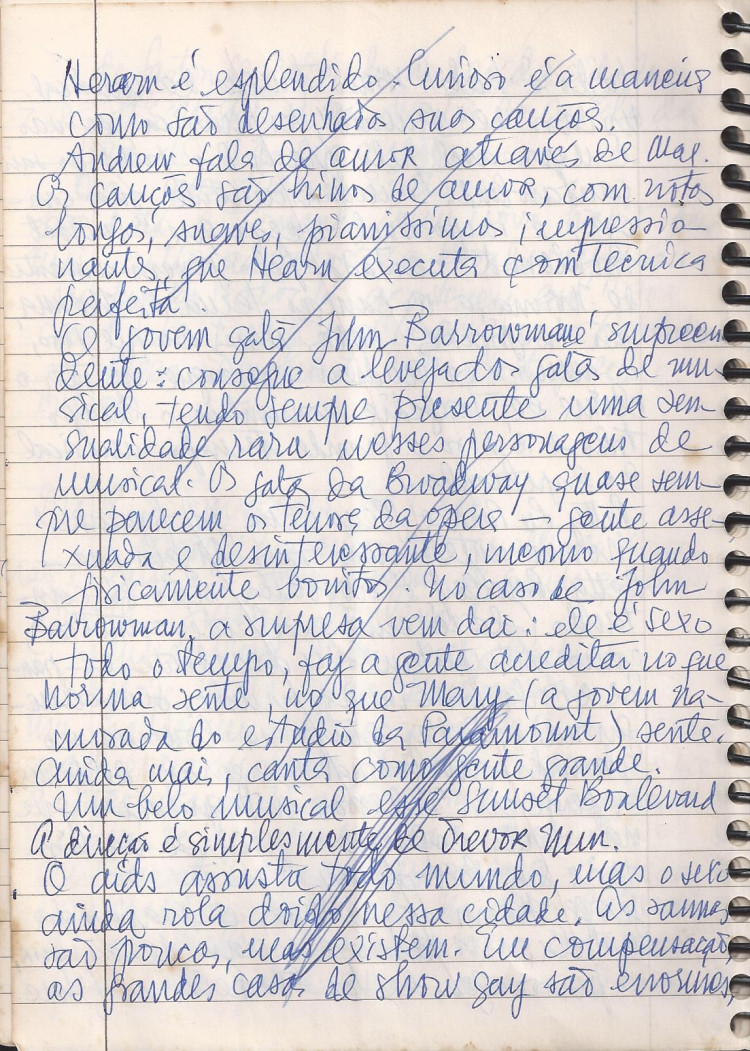 Hearn é esplendido. Curioso é a maneira
como são desenhadas suas canções.
Andrew fala de amor através de Max.
As canções são hinos de amor, com notas
longas, suaves, pianissimos impressio-
nantes, que Hearn executa com técnica
perfeita.
O jovem galã John Barrowman é surpreen
dente: consegue a leveza dos galãs de mu-
sical, tendo sempre presente uma sen-
sualidade rara nesses personagens de
musical. Os galãs da Broadway quase sem-
pre parecem os tenores da ópera — gente asse-
xuada e desinteressante, mesmo quando
fisicamente bonitos. No caso de John
Barrowman, a surpresa vem daí: ele é sexo
todo o tempo, faz a gente acreditar no que
Norma sente, no que Mary (a jovem na-
morada do estúdio da Paramount) sente.
Ainda mais, canta como gente grande.
Um belo musical esse Sunset Boulevard
A direção é simplesmente de Trevor Nun.
O aids assusta todo mundo, mas o sexo
ainda rola doido nessa cidade. As saunas
são poucas, mas existem. Em compensação,
as grandes casas de show gay são enormes,